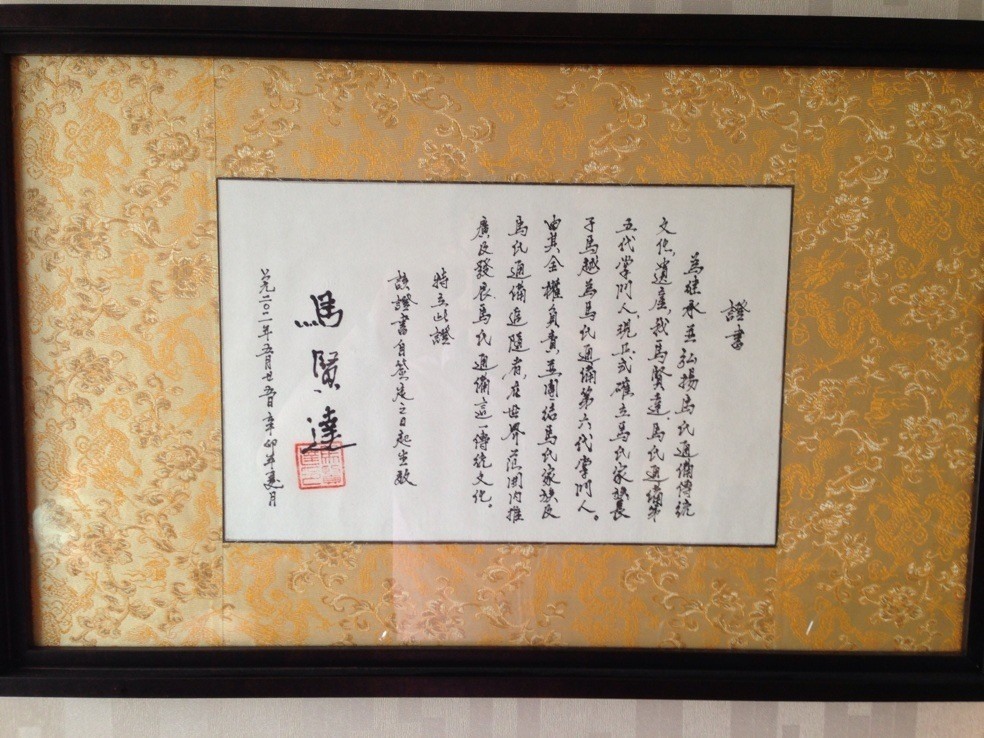 證書
為継承並弘揚馬氏通備傳統
文化遺産，我馬賢達，馬氏通備第
五代掌門人，現正式確立馬氏家族長
子馬越為馬氏通備第六代掌門人。
由其全權負責並團结馬氏家族及
馬氏通備追隨者，在世界范围内推
廣及發展馬氏通備這一傳統文化。
特立此證
該證書自簽定之日起生效
馬賢達
公元二〇一一年五月廿五日辛卯年夏月